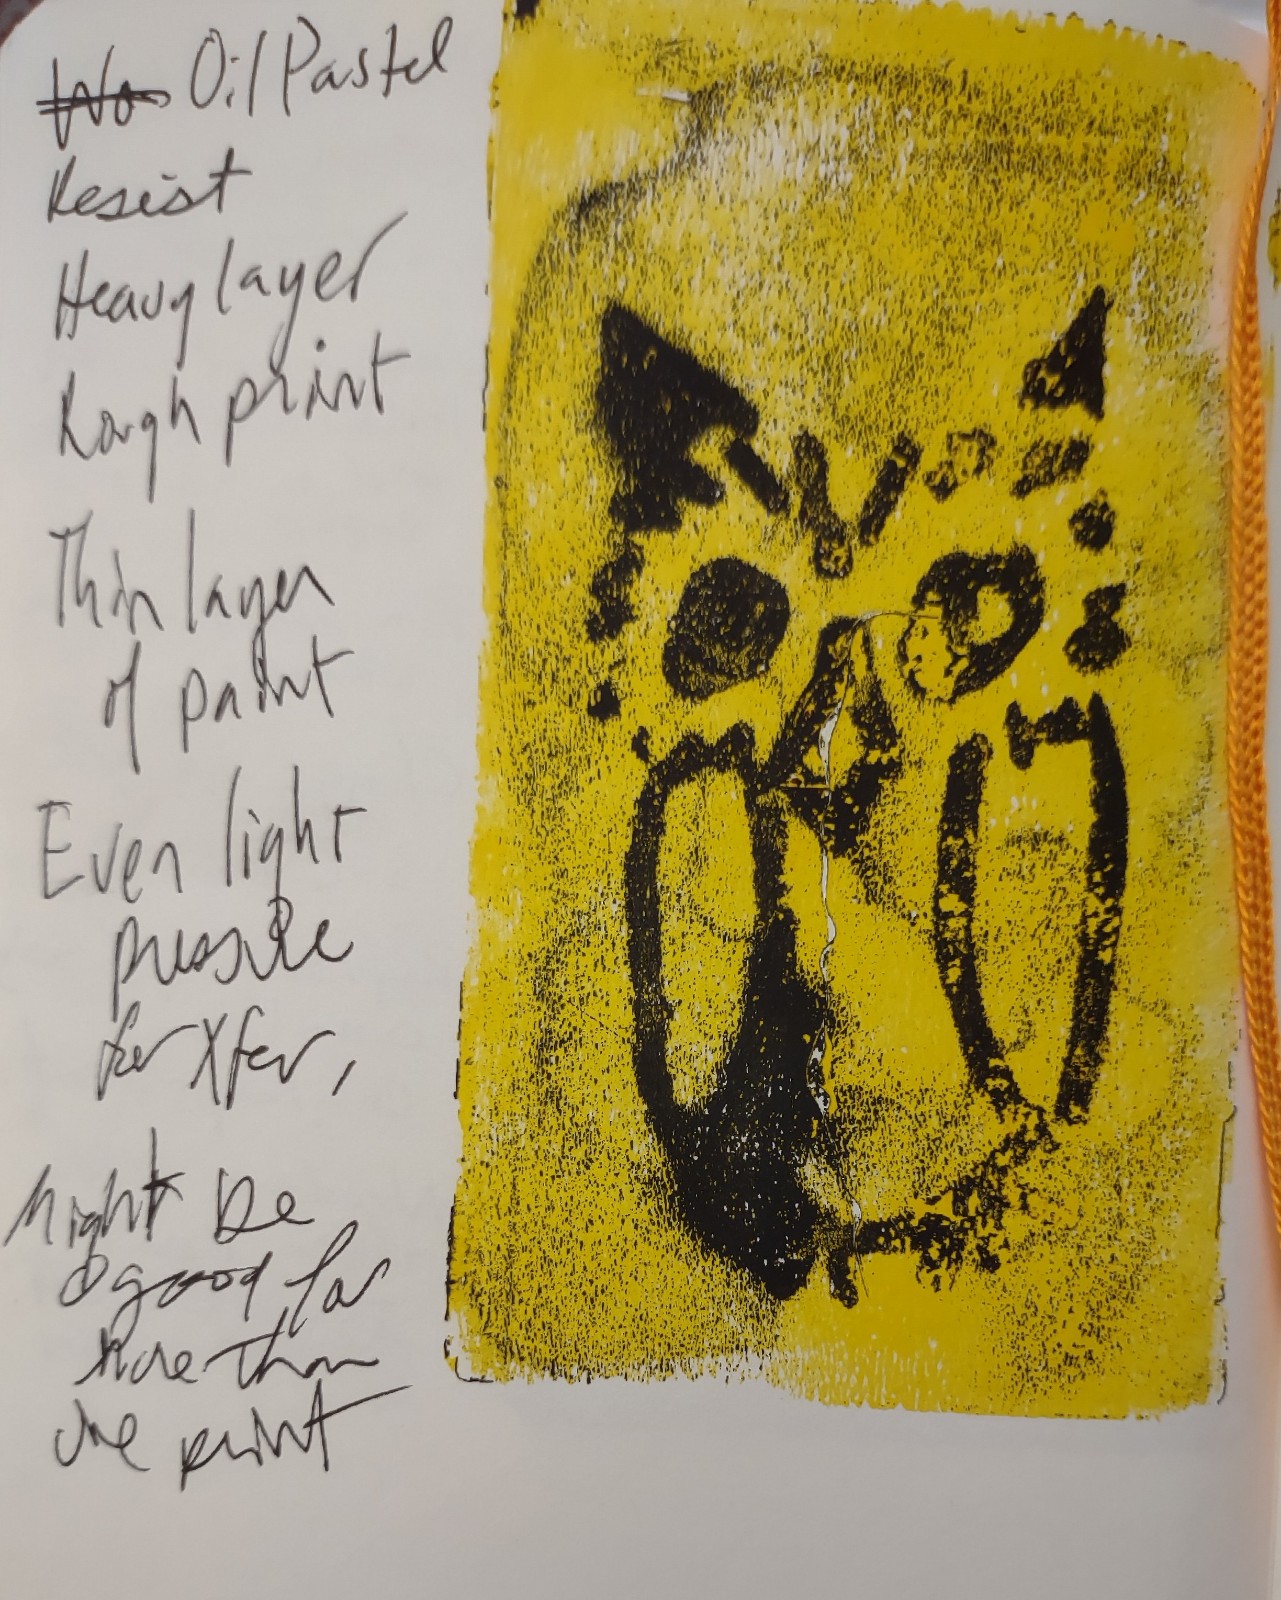 Oil Pastel
Resist
Heavy layer
Rough print
Thin layer
of paint
Even light
pressure
for Xfer,
Might be
good for
more than
one print